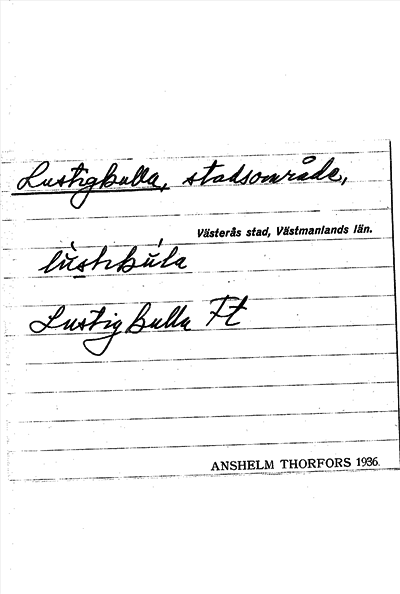 Lustigkulla, stadsområde,
Västerås stad, Västmanlands län.
lùstikúla
Lustigkulla Ft
ANSHELM THORFORS 1936.